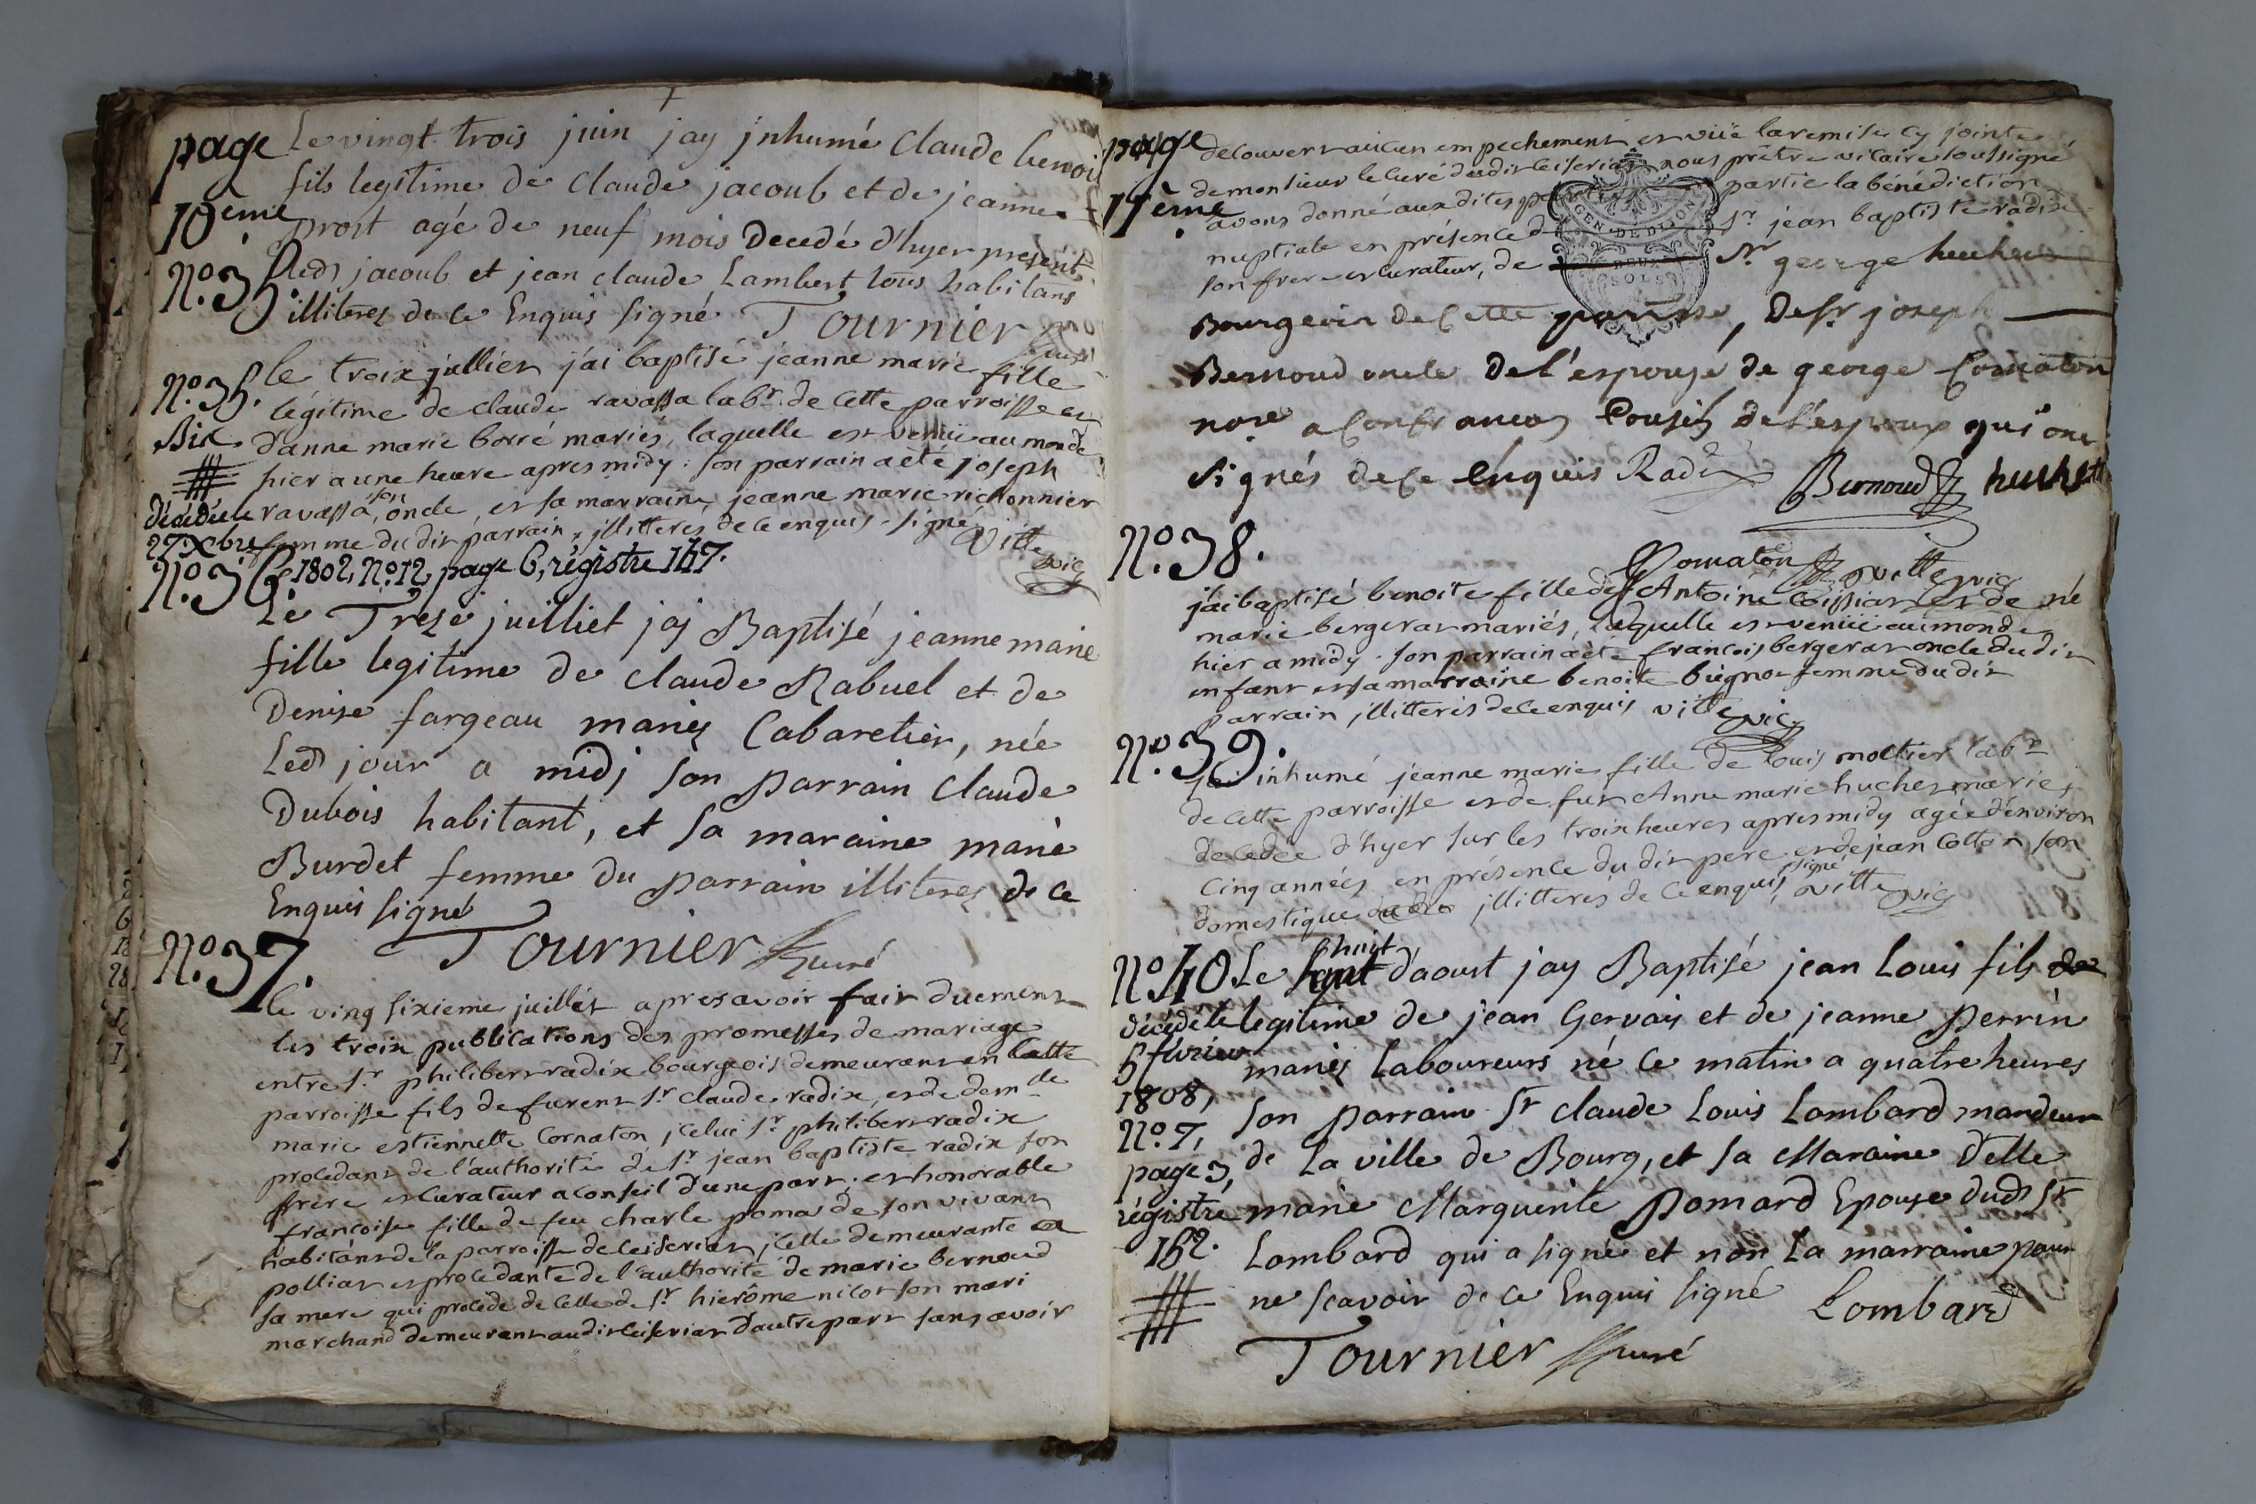 page
10eme
N.o 35.
Le vingt trois juin jay jnhumé Claude benoit
fils legitime de Claude jacoub et de jeanne
prost agé de neuf mois Decedé d'hyer present
Led jacoub et jean claude Lambert tous habitans
illiteres de ce Enquis signé Tournier curé
N.o 35.
Bix
décédée le
27 Xbre
1802, N.o 12, page 6, régistre 147.
le troix jullier j'ai baptisé jeanne marie fille
légitime de claude ravassa labr. de cette parroisse et
d'anne marie borré mariés, laquelle est venüe au monde
hier a une heure apres midy. son parrain a eté joseph
ravassa, son oncle, et sa marraine, jeanne marie richonnier
femme du dit parrain, jllitteres de ce enquis. signé Vitte vic
N.o 36
Le Treze juilliet jaj Baptisé jeanne marie
fille legitime de claude Rabuel et de
Denise fargeau mariés Cabaretier, née
Led jour a midj son parrain Claude
Dubois habitant, et sa maraine marie
Burdet femme du parrain illiteres de ce
Enquis signé
Tournier curé
N.o 37.
le ving sixieme juillet apres avoir fait duement
les troix publications des promesses de mariage
entre sr. philibert radix bourgeois demeurant en cette
parroisse fils de furent sr. claude radix, et de demlle
marie estiennette Cornaton, jcelui sr. philibert radix
procedant de l'authorité de sr. jean baptiste radix son
frere et curateur a conseil d'une part, et honorable
francoise fille de feu charle poma de son vivant
habitant de la parroisse de ceiseriat, jcelle demeurante a
polliat et procedante de l'authorité de marie bernoud
sa mere qui procede de celle de sr. hierome nilot son mari
marchand demeurant audit ceiseriat d'autre part sans avoir
page
11eme
decouvert aucun empechement et vüe la remise cy jointe
de monsieur le curé dudit ceiseriat nous prêtre vicaire soussigné
avons donné aux dites partie la bénédiction
nuptiale en présence d sr. jean baptiste radix
son frere et curateur, de Sr. george huchet
Bourgeois de Cette paroisse, de sr. joseph
Bernoud oncle de l'espouse de george Cornaton
nore a Confrancon Cousin de l'espoux qui ont
signés de ce enquis Radix Bernoud huchet
Cornaton Vitte vic
N.o 38.
j'ai baptisé benoite fille de Antoine Coissiat et de né
marie bergerat mariés, laquelle est venüe au monde
hier a midy. son parrain a eté francois bergerat oncle du dit
enfant et sa marraine benoite bugnot femme du dit
parrain jllitterés de ce enquis Vitte vic
N.o 39.
jai inhumé jeanne marie fille de louis moltier labr
de cette parroisse et de fut Anne marie huchet mariés
decedée d'hyer sur les troix heures apres midy agée d'environ
cinq années en présence du dit pere et de jean Cotton son
domestique jllitterés de ce enquis, signé Vitte vic
N.o 40
décédé le
5 février
1808,
N.o 7,
page 3,
régistre
152.
Le huit d'aoust jay Baptisé jean Louis fils de
legitime de jean Gervais et de jeanne perrin
mariés Laboureurs né ce matin a quatre heures
son parrain sr claude Louis Lombard mandeur
de La ville de Bourg, et sa Maraine Delle
marie Marguerite Pomard Epouse dud sr
Lombard qui a signé et non La marraine pour
ne scavoir de ce Enquis signé Lombard
Tournier curé
GEN. DE DIJON
DEUX
SOLS